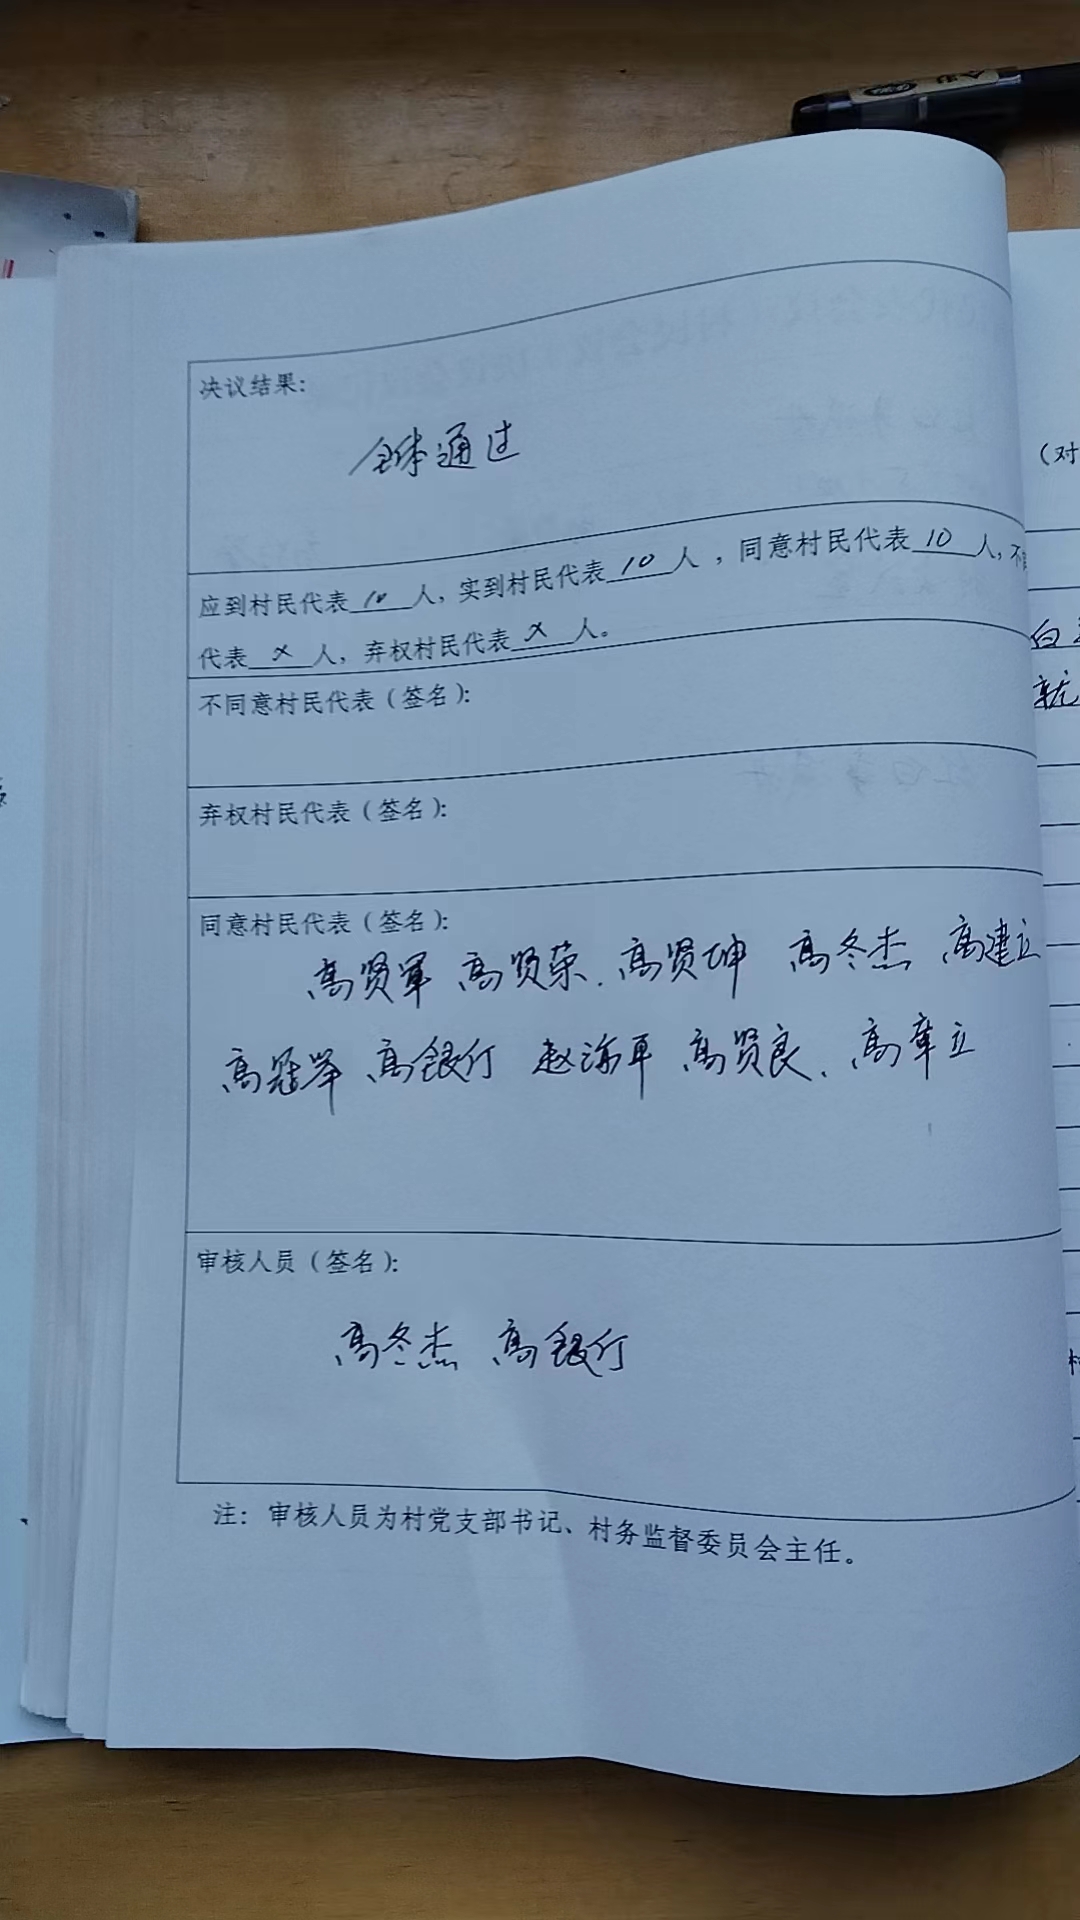 决议结果:
全体通过
应到村民代表 10 人, 实到村民代表 10 人 , 同意村民代表 10 人, 不
代表 x 人, 弃权村民代表 x 人。
不同意村民代表 (签名):
弃权村民代表 (签名):
同意村民代表 (签名):
高贤军 高贤荣. 高贤坤 高冬杰 高建立
高冠举 高银行 赵海平 高贤良、高章立
审核人员 (签名):
高冬杰 高银行
注: 审核人员为村党支部书记、村务监督委员会主任。
(对
白
就